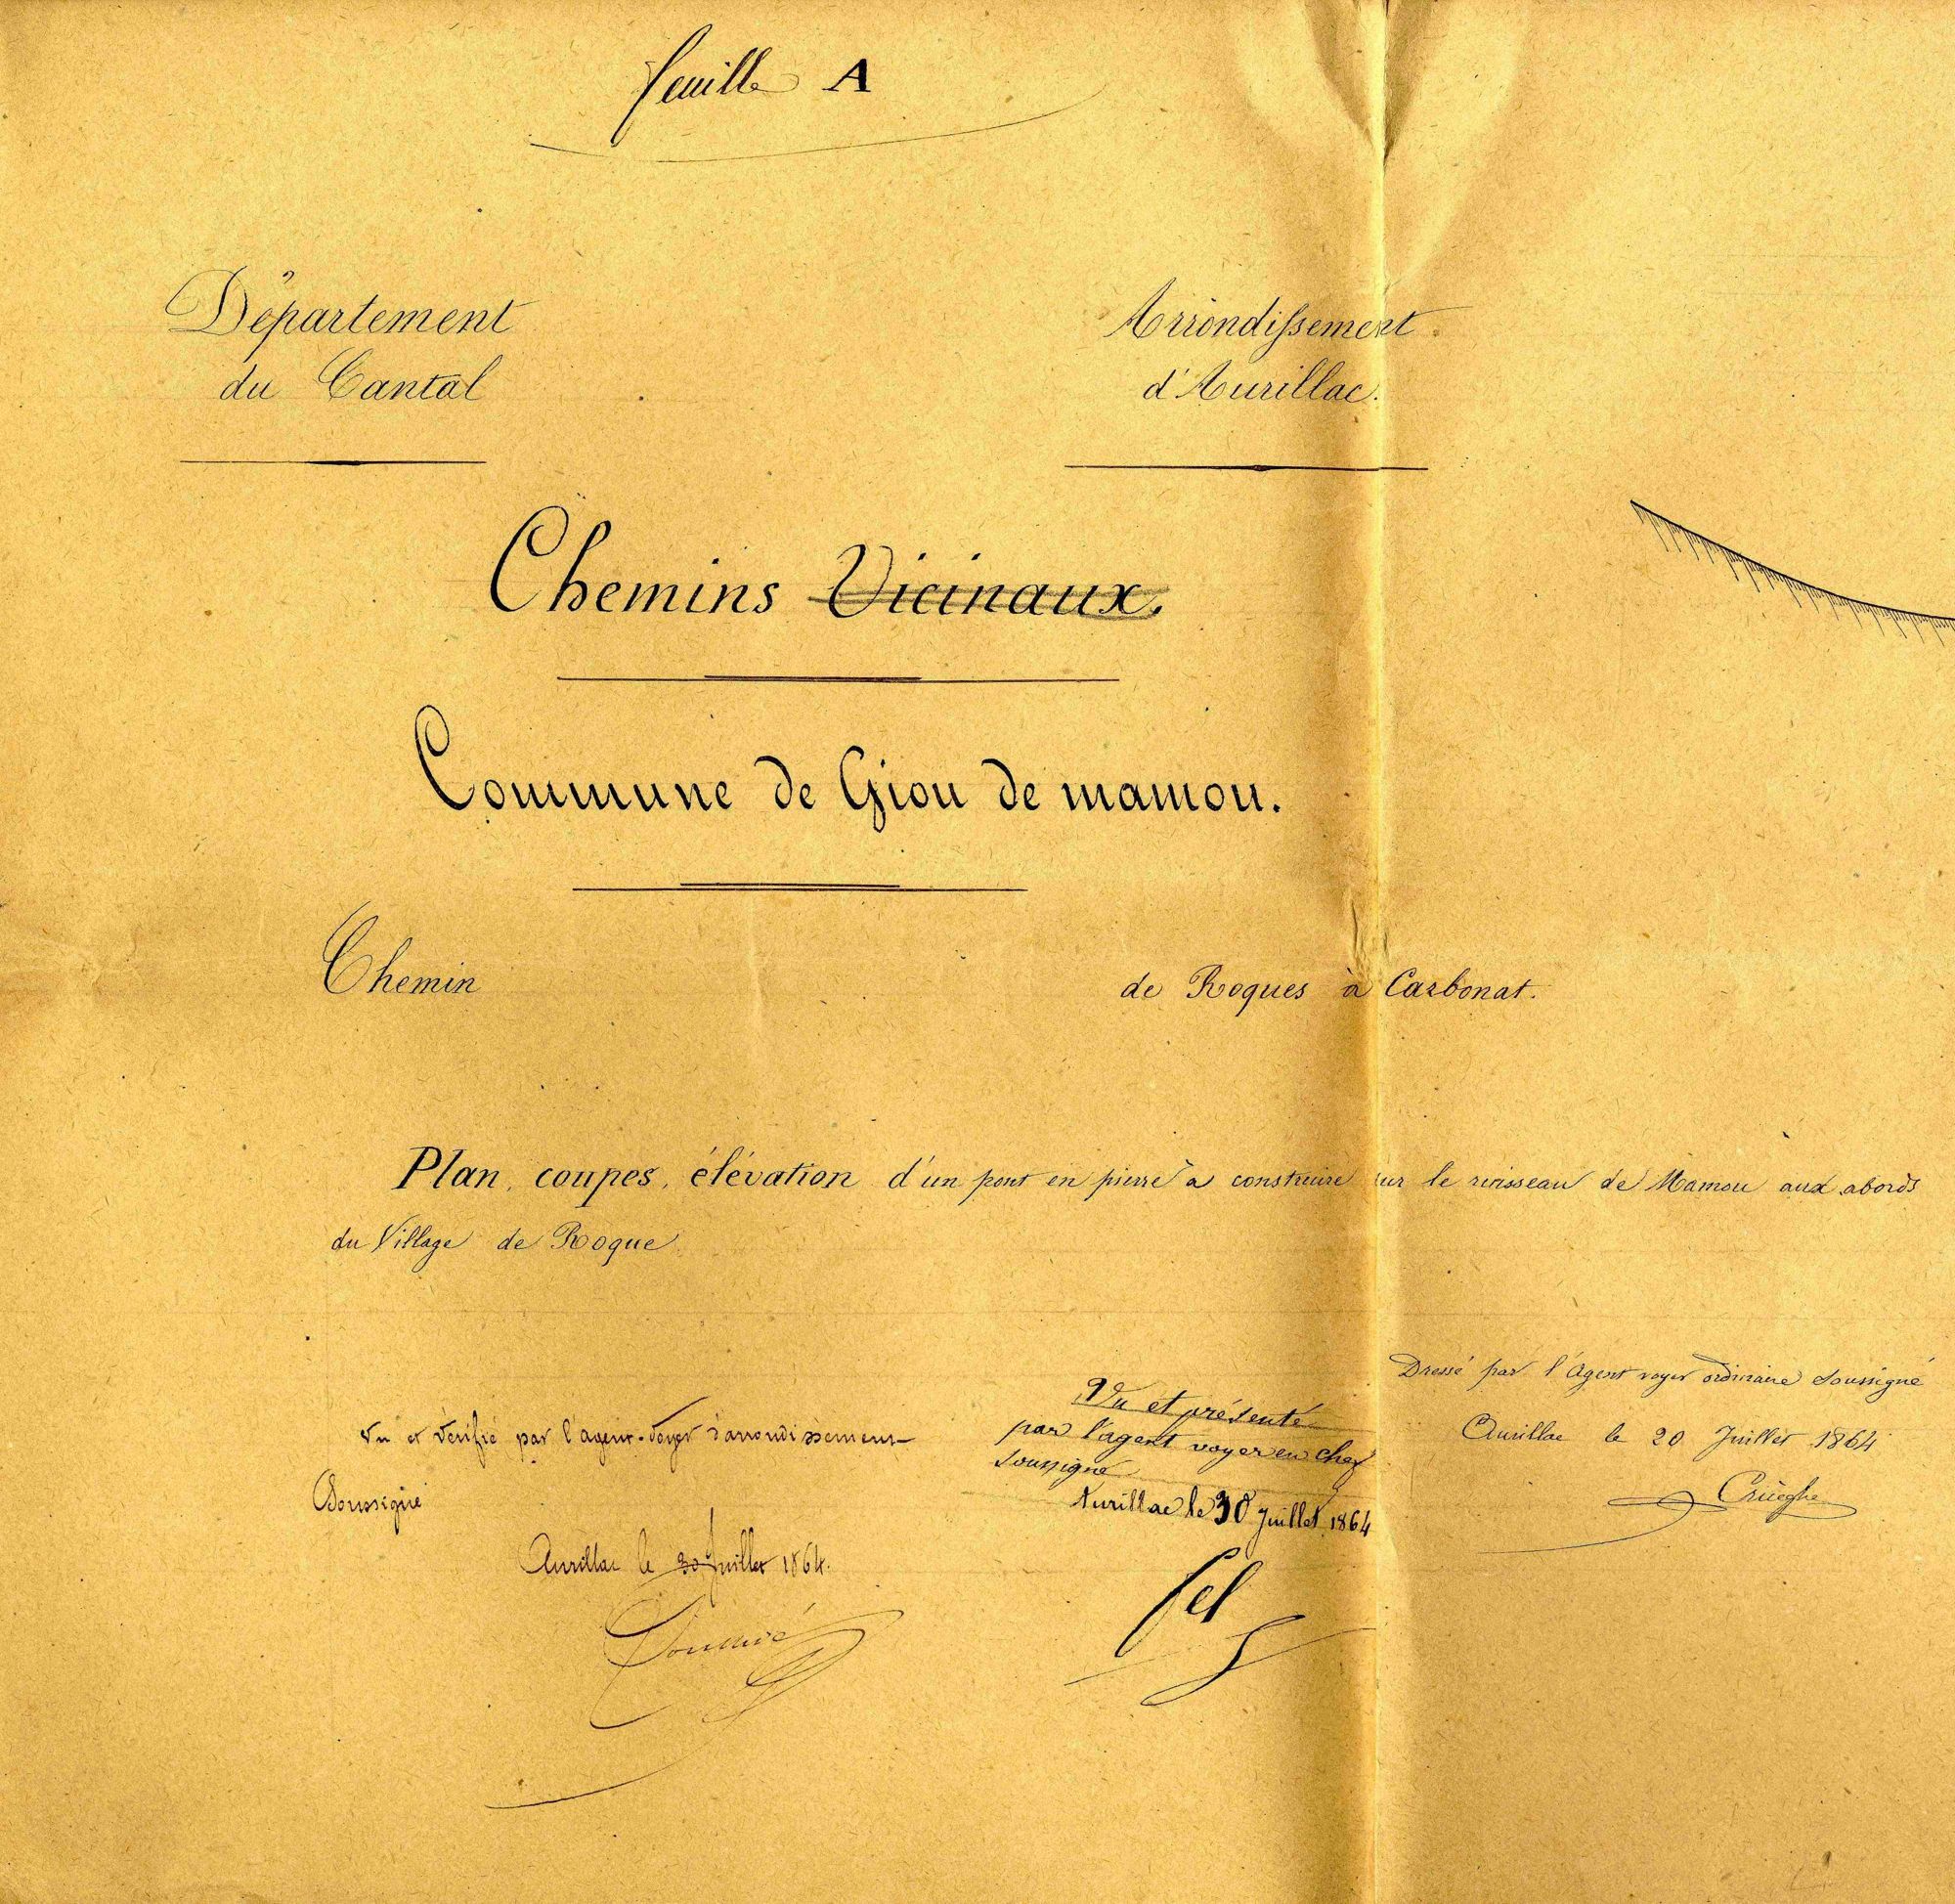 feuille A
Département
du Cantal
Arrondissement
d'Aurillac.
Chemins Vicinaux.
Commune de Giou de mamou.
Chemin de Roques à Carbonat.
Plan, coupes, élévation d'un pont en pierre à construire sur le ruisseau de Mamou aux abords
du Village de Roque
Dressé par l'Agent voyer ordinaire soussigné
Aurillac le 20 Juillet 1864
Vu et présenté
par l'agent voyer en chef
soussigné
Aurillac le 30 Juillet 1864
fel
Vu et Vérifié par l'agent-Voyer d'arrondissement
Soussigné
Aurillac le 30 Juillet 1864.